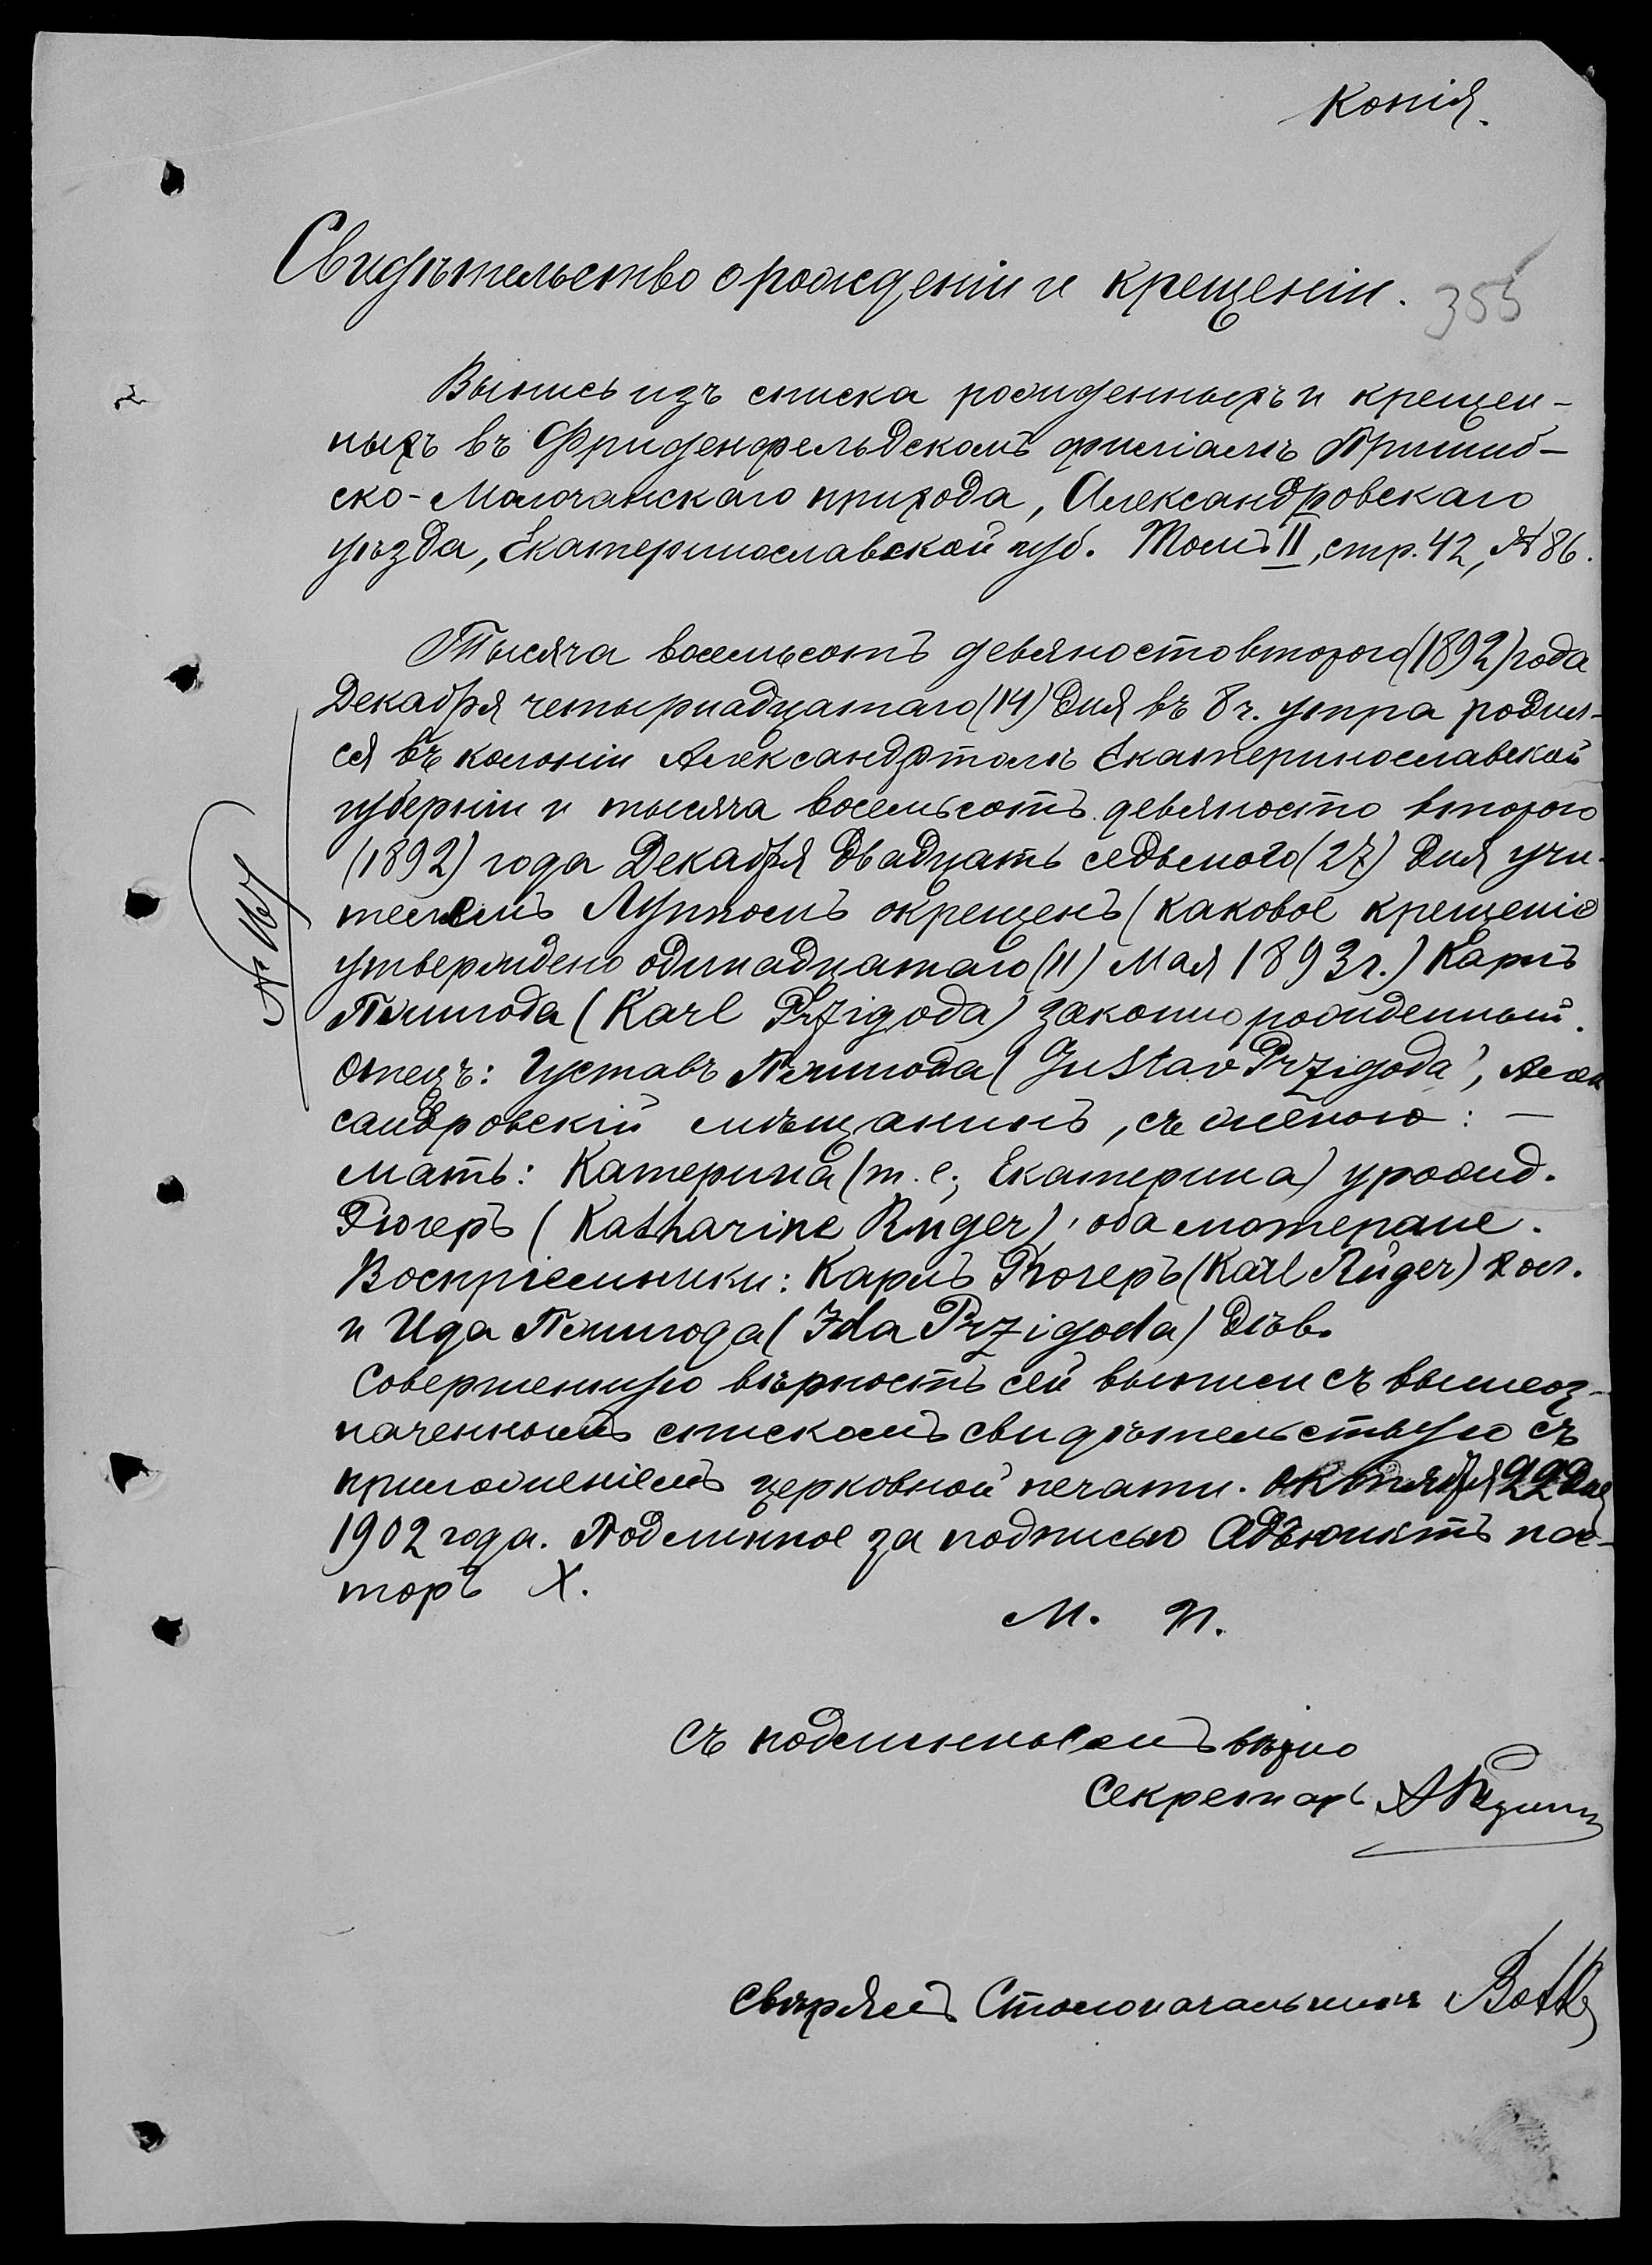 Копія.
Свидѣтельство о рожденіи и крещеніи.
355
Выпись изъ списка рожденныхъ и крещен-
ныхъ въ Фриденфельдскомъ филіалѣ Пришиб-
ско-Молочанскаго прихода, Александровскаго
уѣзда, Екатеринославской губ. Томъ II, стр. 42, № 86.
Тысяча восемьсотъ девяносто второго (1892) года
Декабря четырнадцатаго (14) дня въ 8 ч. утра родил-
ся въ колоніи Александрталѣ Екатеринославской
губерніи и тысяча восемьсотъ девяносто второго
(1892) года Декабря двадцать седьмого (27) дня учи-
телемъ Луппомъ окрещенъ (каковое крещеніе
утверждено одинадцатаго (11) Мая 1893 г.) Карлъ
Пжигода (Karl Przigoda) законно рожденный.
Отецъ: Густавъ Пжигода (Gustav Przigoda), Алек
сандровскій мѣщанинъ, съ женою: —
Мать: Катерина (т. е. Екатерина) урожд.
Рюгеръ (Katharine Rüger), оба лютеране.
Воспріемники: Карлъ Рюгеръ (Karl Rüger) хол.
и Ида Пжигода (Ida Przigoda) дѣв.
Совершенную вѣрность сей выписи съ вышеоз-
наченнымъ спискомъ свидѣтельствую съ
приложеніемъ церковной печати. Октября 22 дня
1902 года. Подлинное за подписью Адъюнктъ пас-
торъ Х.
М. П.
Съ подлиннымъ вѣрно
Секретарь
Свѣрялъ Столоначальникъ